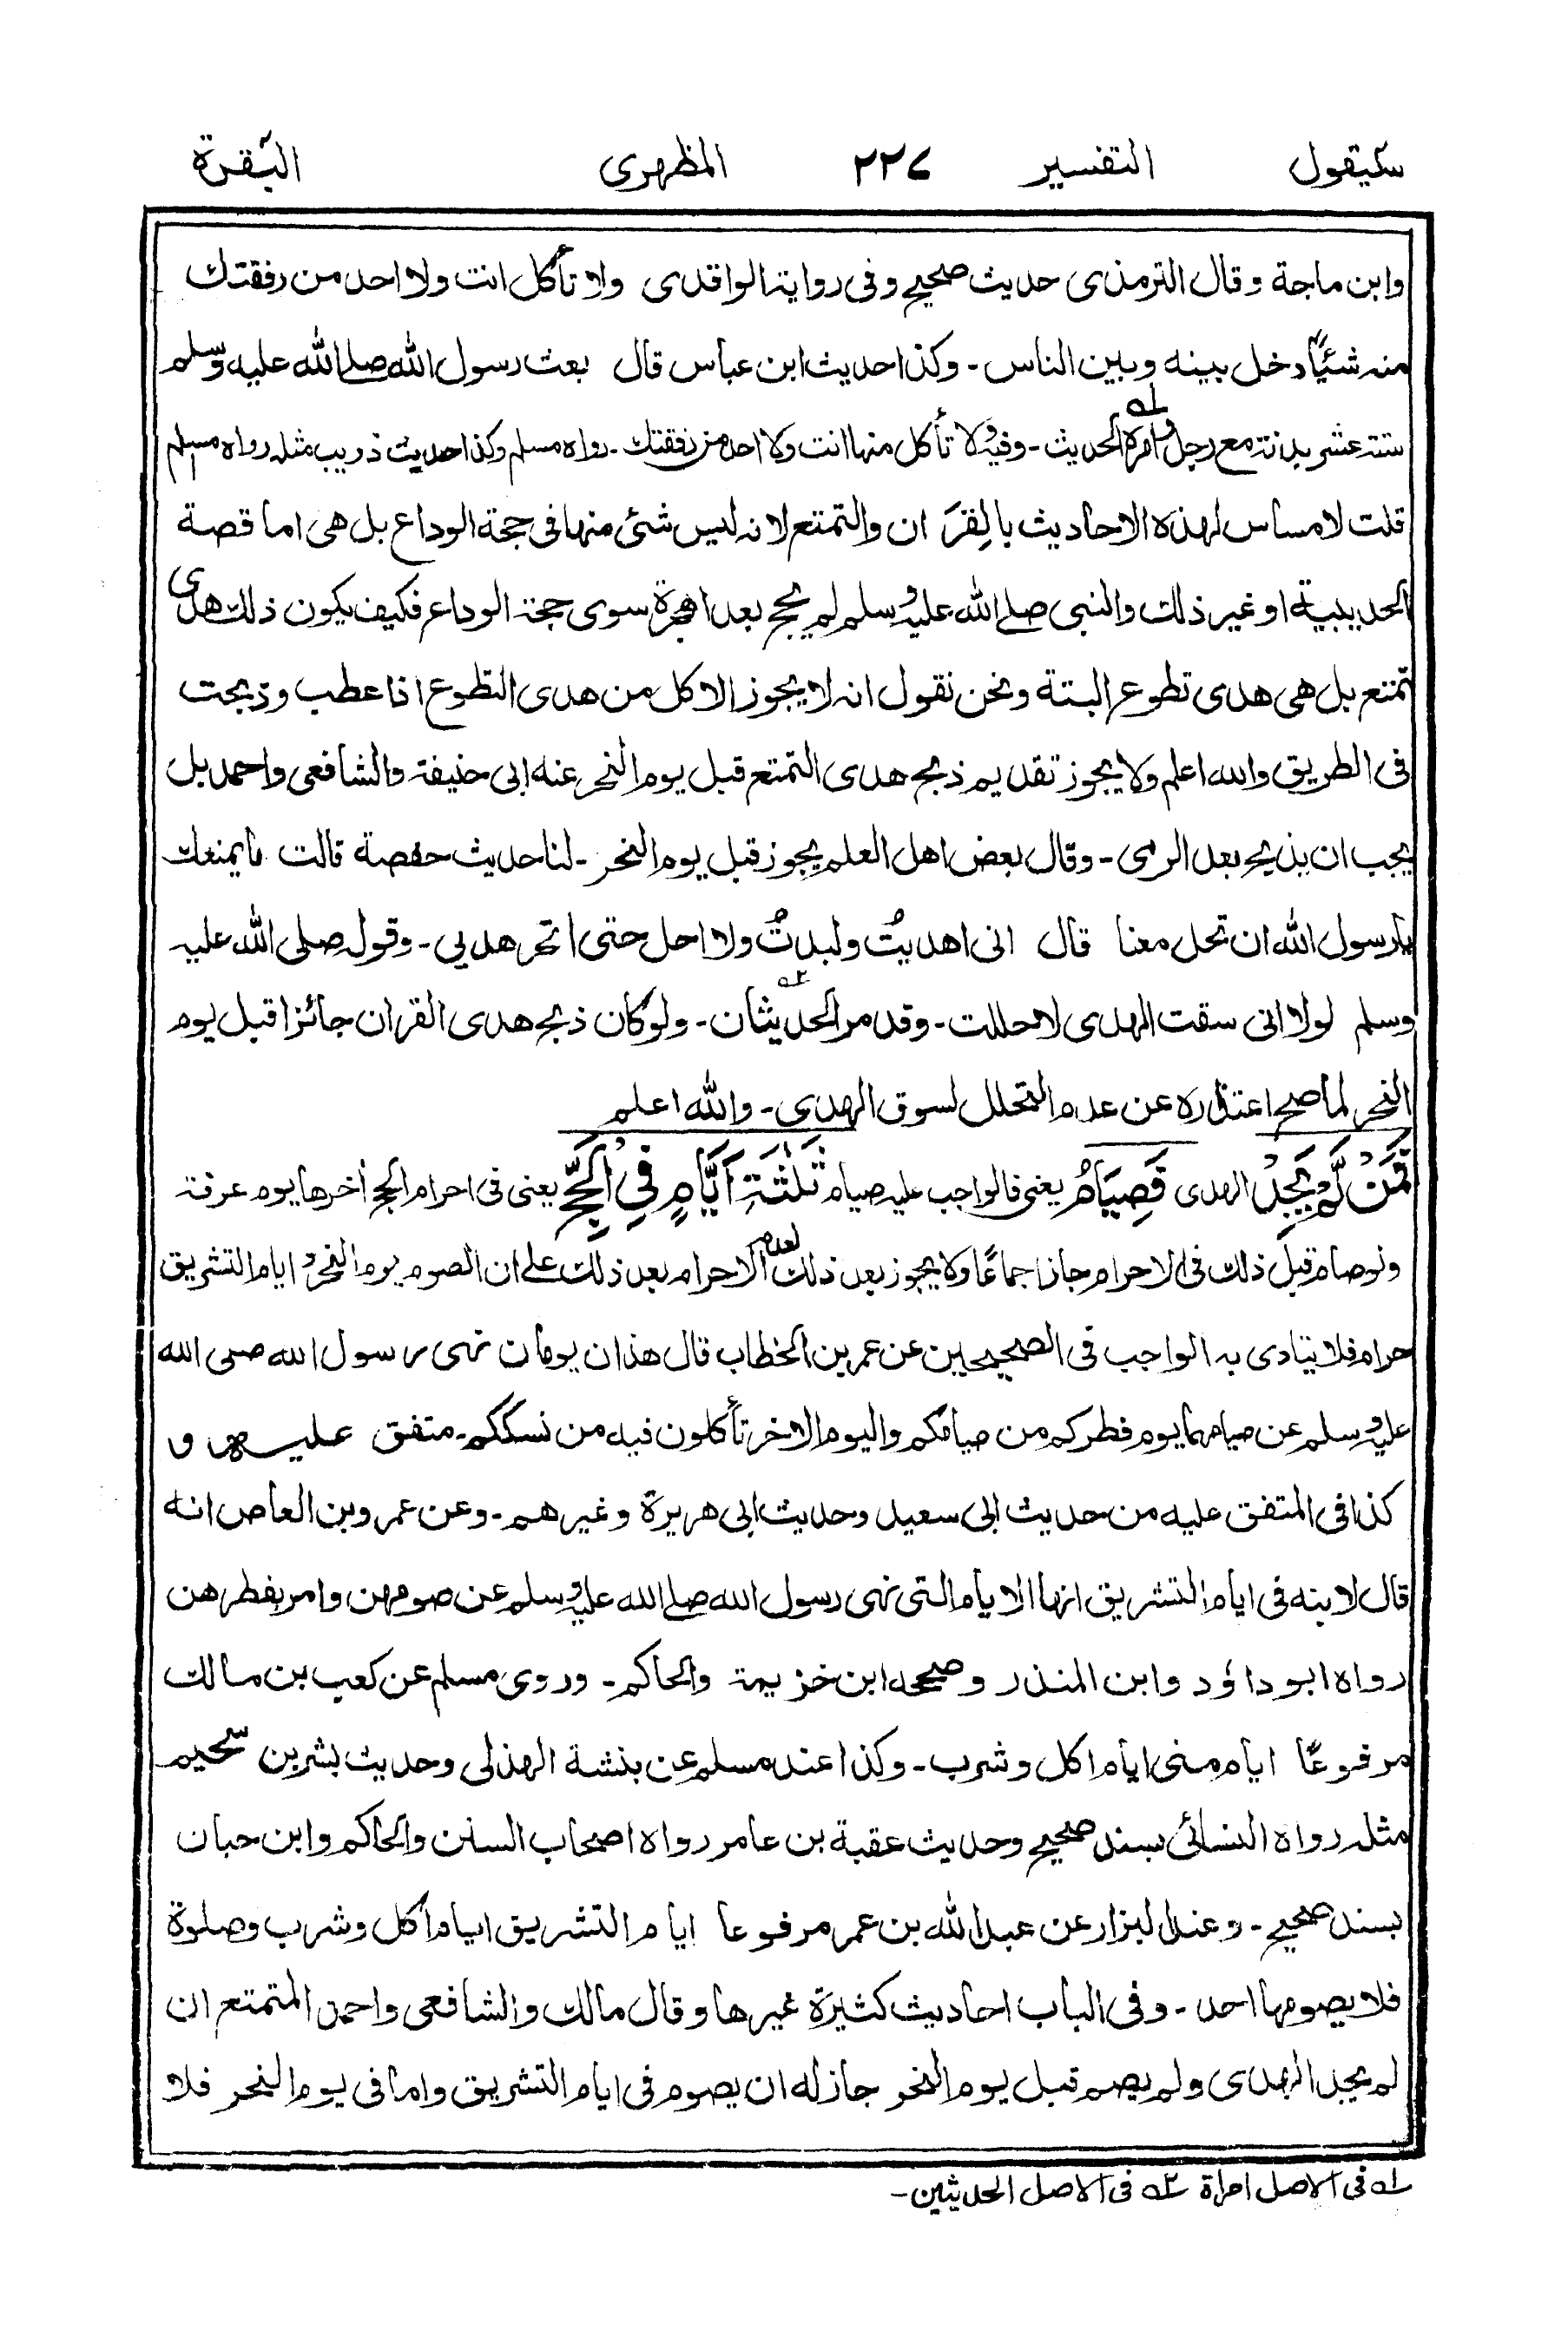 سيقول التفسير ٢٢٧ المظهرى البقرة
وابن ماجة وقال الترمذى حديث صحيح وفى رواية الواقدى ولا تأكل انت ولا احد من رفقتك
منه شئيًا دخل بينه وبين الناس - وكذا حديث ابن عباس قال بعث رسول الله صلے الله عليه وسلم
ستة عشر بدنة مع رجل وامره الحديث - وفيه ولا تأكل منها انت ولا احد من رفقتك - رواه مسلم وكذا حديث ذريب مثله رواه مسلم
قلت لا مساس لهذه الاحاديث بالقِرَان والتمتع لانه ليس شئ منها فى حجة الوداع بل هى اما قصة
الحديبية او غير ذلك والنبى صلے الله عليه وسلم لم يحج بعد الهجرة سوى حجة الوداع فكيف يكون ذلك هدى
تمتع بل هى هدى تطوع البتة ونحن نقول انه لا يجوز الاكل من هدى التطوع اذا عطب وذبحت
فى الطريق والله اعلم ولا يجوز تقديم ذبح هدى التمتع قبل يوم النحر عند ابى حنيفة والشافعى واحمد بل
يجب ان يذبح بعد الرمى - وقال بعض اهل العلم يجوز قبل يوم النحر - لنا حديث حفصة قالت ما يمنعك
يا رسول الله ان تحل معنا قال انى اهديتُ ولبدتُ ولا احل حتى انحر هديي - وقوله صلى الله عليه
وسلم لولا انى سقت الهدى لاحللت - وقد مر الحديثان ٢ - ولو كان ذبح هدى القران جائزا قبل يوم
النحر لما صح اعتذاره عن عدم التحلل لسوق الهدى - والله اعلم
فَمَنْ لَّمْ يَجِدْ الهدى فَصِيَامُ يعنى فالواجب عليه صيام ثَلٰثَةِ اَيَّامٍ فِي الْحَجِّ يعنى فى احرام الحج اخرها يوم عرفة
ولو صام قبل ذلك فى الاحرام جاز اجماعًا ولا يجوز بعد ذلك لعدم الاحرام بعد ذلك علے ان الصوم يوم النحر و ايام التشريق
حرام فلا يتادى به الواجب فى الصحيحين عن عمر بن الخطاب قال هذان يومان نهى رسول الله صلى الله
عليه وسلم عن صيامهما يوم فطركم من صيامكم واليوم الاخر تأكلون فيه من نسككم - متفق عليه و
كذا فى المتفق عليه من حديث ابى سعيد وحديث ابى هريرة وغيرهم - وعن عمرو بن العاص انه
قال لابنه فى ايام التشريق انها الايام التى نهى رسول الله صلے الله عليه وسلم عن صومهن وامر بفطرهن
رواه ابو داؤد وابن المنذر وصححه ابن خزيمة والحاكم - وروى مسلم عن كعب بن مالك
مرفوعًا ايام منى ايام اكل وشرب - وكذا عند مسلم عن بنشة الهذلى وحديث بشر بن سحيم
مثله رواه النسائى بسند صحيح وحديث عقبة بن عامر رواه اصحاب السنن والحاكم وابن حبان
بسند صحيح - وعند البزار عن عبد الله بن عمر مرفوعا ايام التشريق ايام اكل وشرب وصلوة
فلا يصومها احد - وفى الباب احاديث كثيرة غيرها وقال مالك والشافعى واحمد المتمتع ان
لم يجد الهدى ولم يصم قبل يوم النحر جاز له ان يصوم فى ايام التشريق واما فى يوم النحر فلا
١ـه فى الاصل امراة ٢ـه فى الاصل الحديثين -